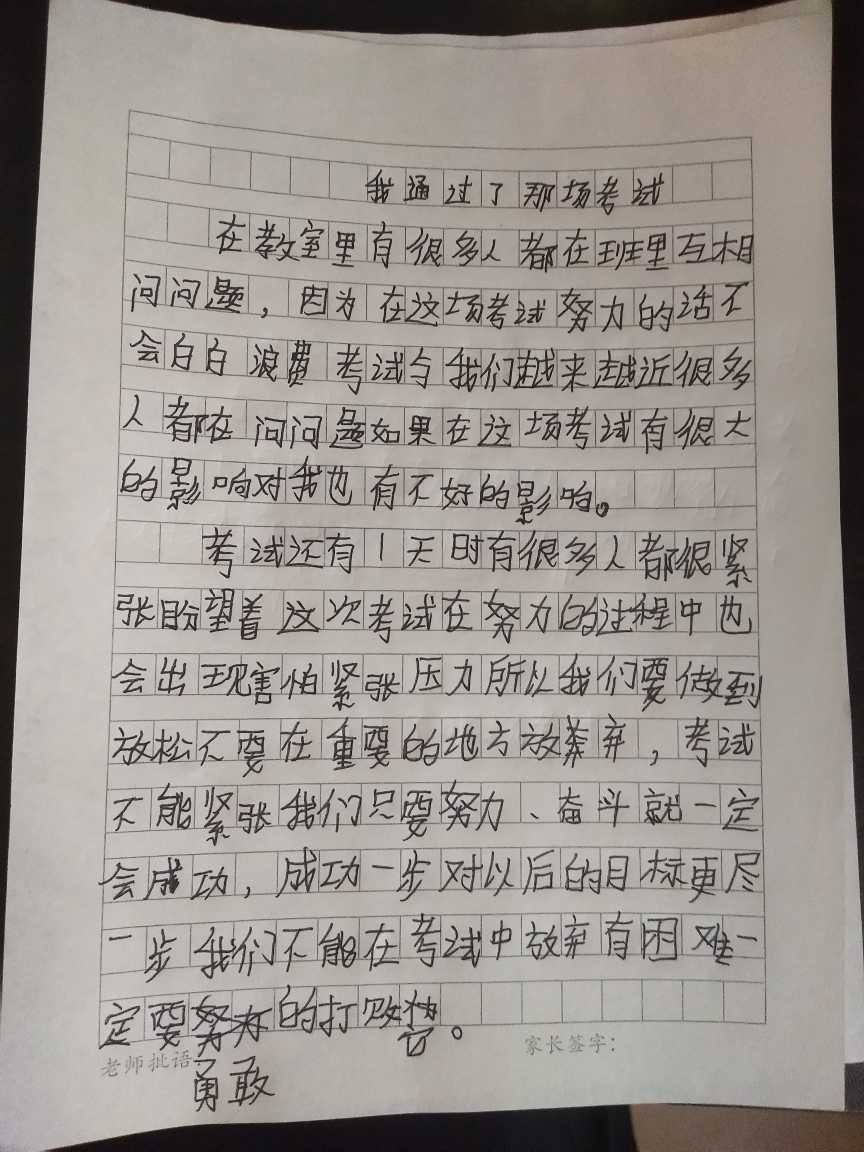 我通过了那场考试
在教室里有很多人都在班里互相
问问题，因为在这场考试努力的话不
会白白浪费考试与我们越来越近很多
人都在问问题如果在这场考试有很大
的影响对我也有不好的影响。
考试还有1天时有很多人都很紧
张盼望着这次考试在努力的过程中也
会出现害怕紧张压力所以我们要做到
放松不要在重要的地方放弃，考试
不能紧张我们只要努力、奋斗就一定
会成功，成功一步对以后的目标更尽
一步我们不能在考试中放弃有困难一
定要的打败它。
勇敢
老师批语
家长签字：